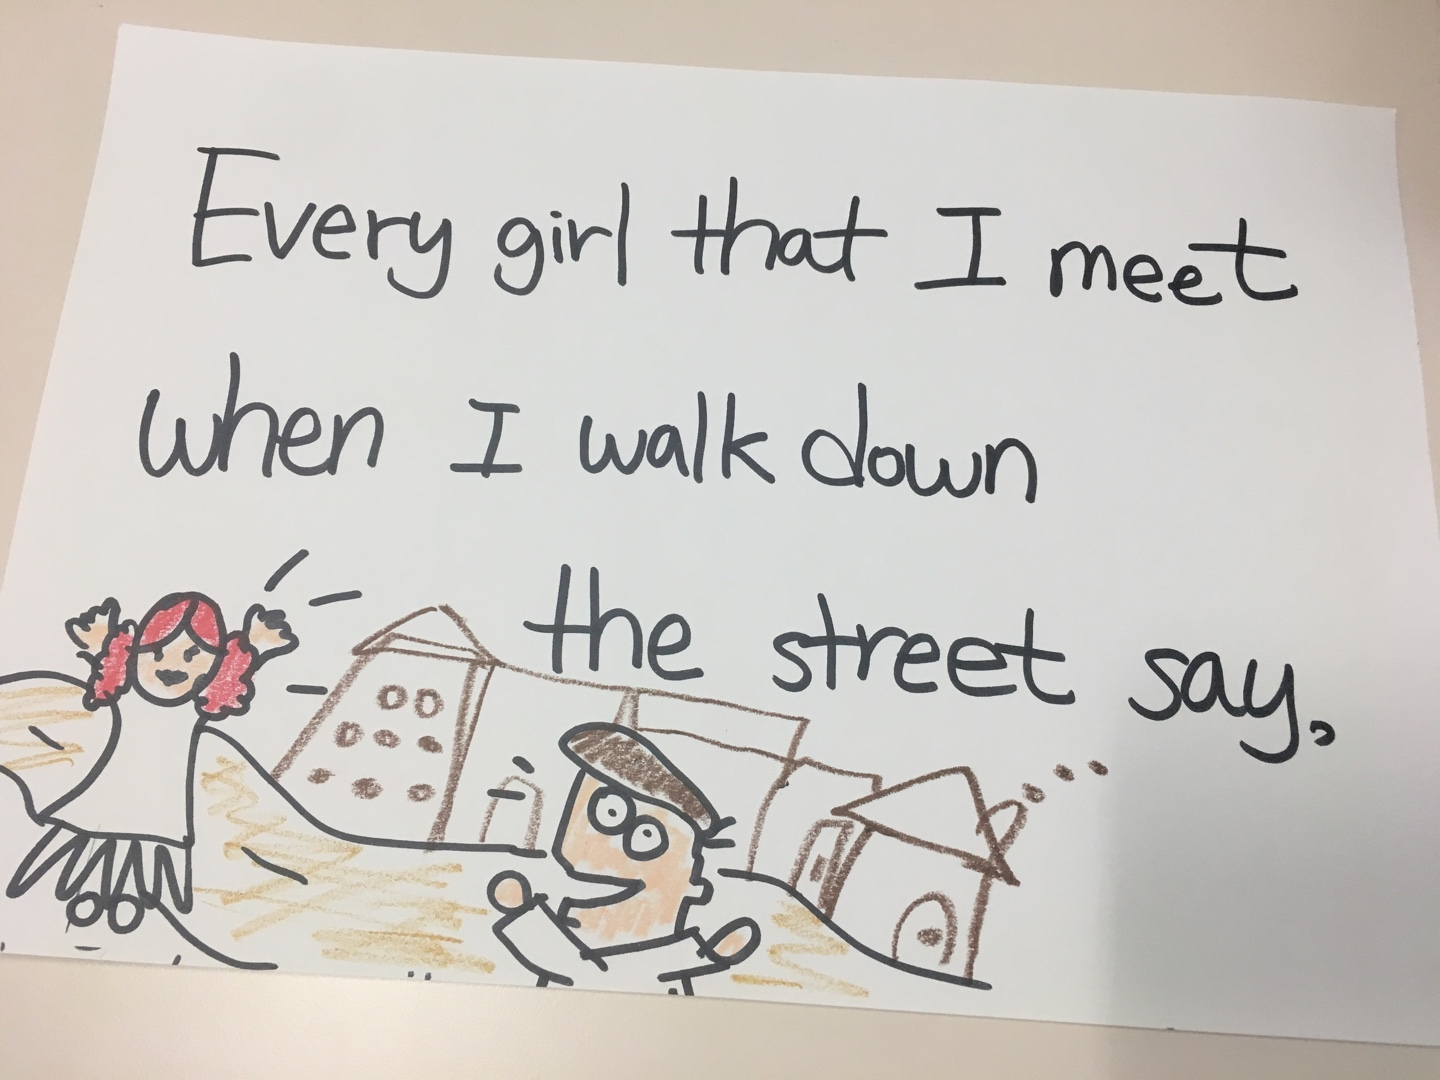 Every girl that I meet
when I walk down
the street say,